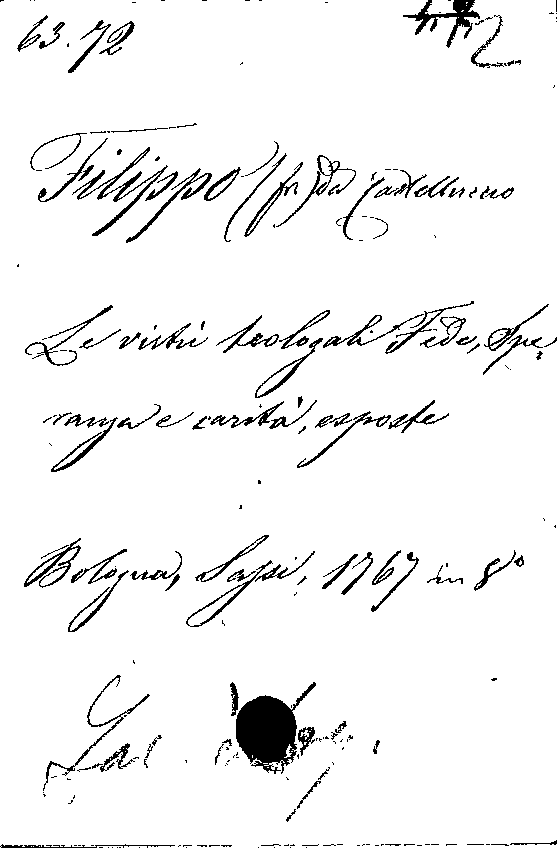 63.72
Filippo (fr) da Castelluccio
Le virtù teologali Fede, Spe-
ranza e carità, esposte
Bologna, Sassi, 1767 in 8°